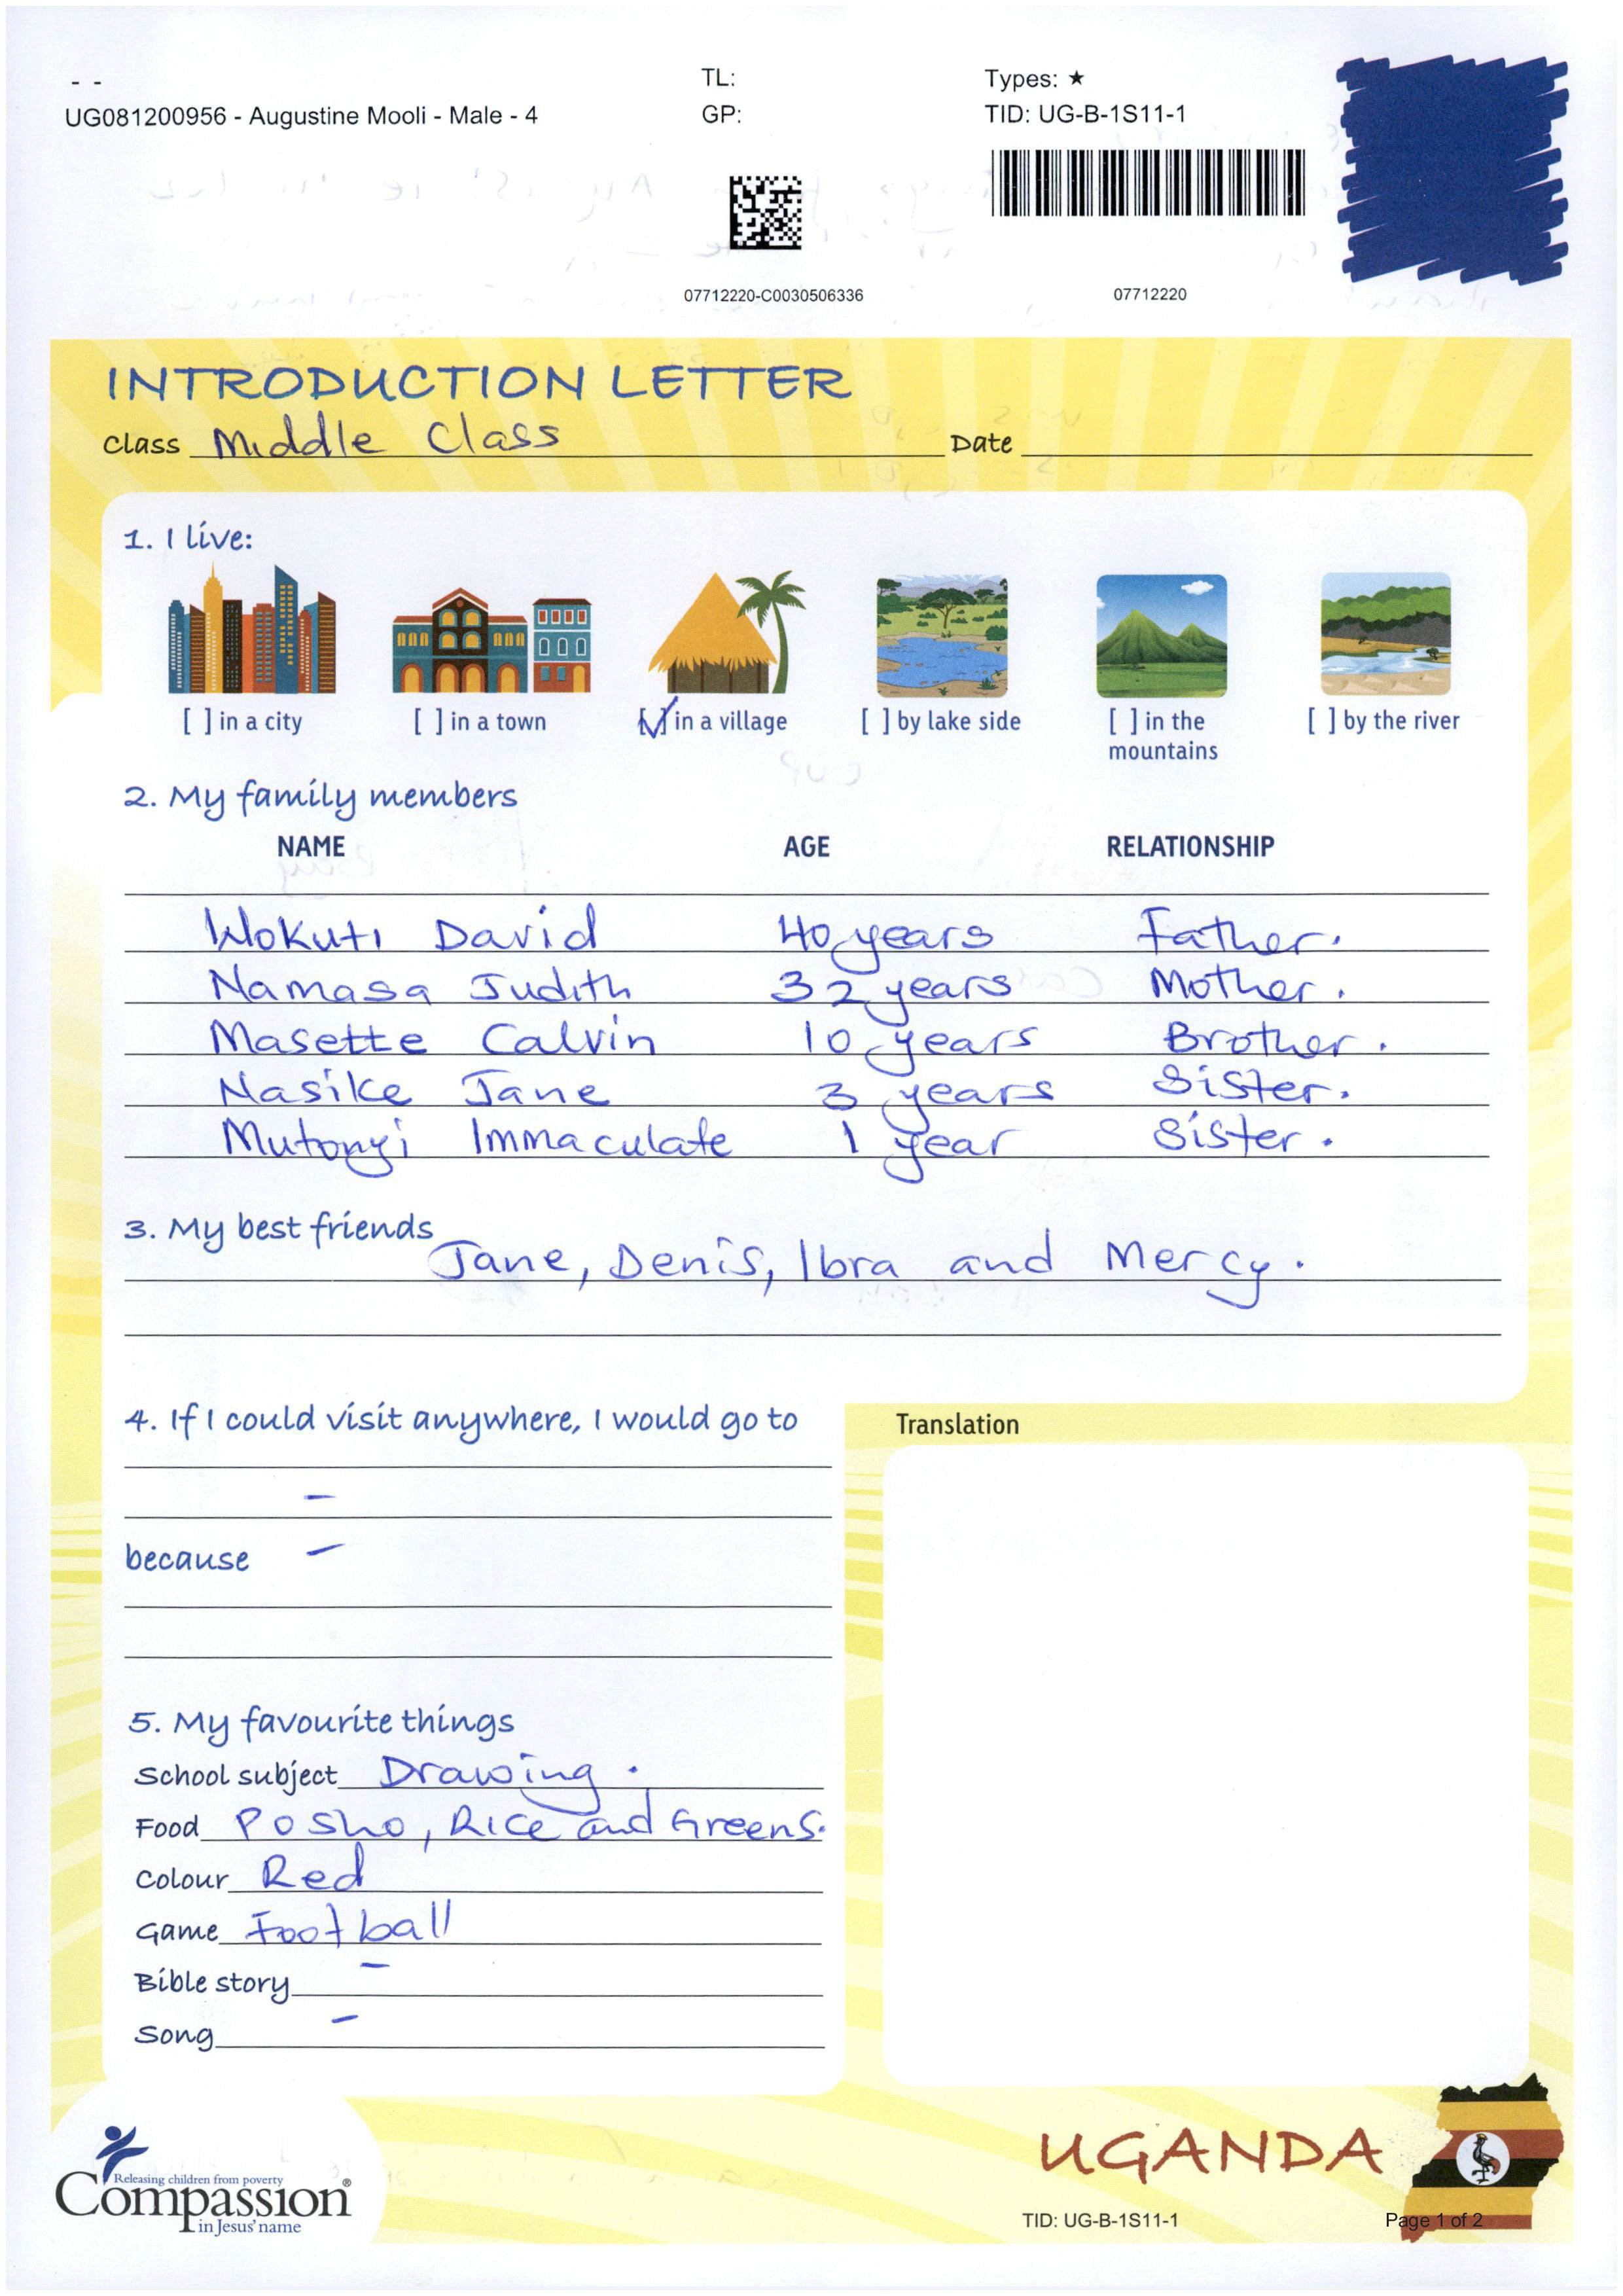 - -
UG081200956 - Augustine Mooli - Male - 4
TL:
GP:
Types: ★
TID: UG-B-1S11-1
07712220-C0030506336
07712220
INTRODUCTION LETTER
Class Middle Class Date
1. I live:
[ ] in a city [ ] in a town [✓] in a village [ ] by lake side [ ] in the mountains [ ] by the river
2. My family members
NAME AGE RELATIONSHIP
Wokuti David 40 years Father.
Namasa Judith 32 years Mother.
Masette Calvin 10 years Brother.
Nasike Jane 3 years Sister.
Mutonyi Immaculate 1 year Sister.
3. My best friends
Jane, Denis, Ibra and Mercy.
4. If I could visit anywhere, I would go to
-
because -
Translation
5. My favourite things
School subject Drawing.
Food Posho, Rice and Greens.
Colour Red
Game Football
Bible story -
Song -
Releasing children from poverty
Compassion®
in Jesus' name
UGANDA
TID: UG-B-1S11-1
Page 1 of 2